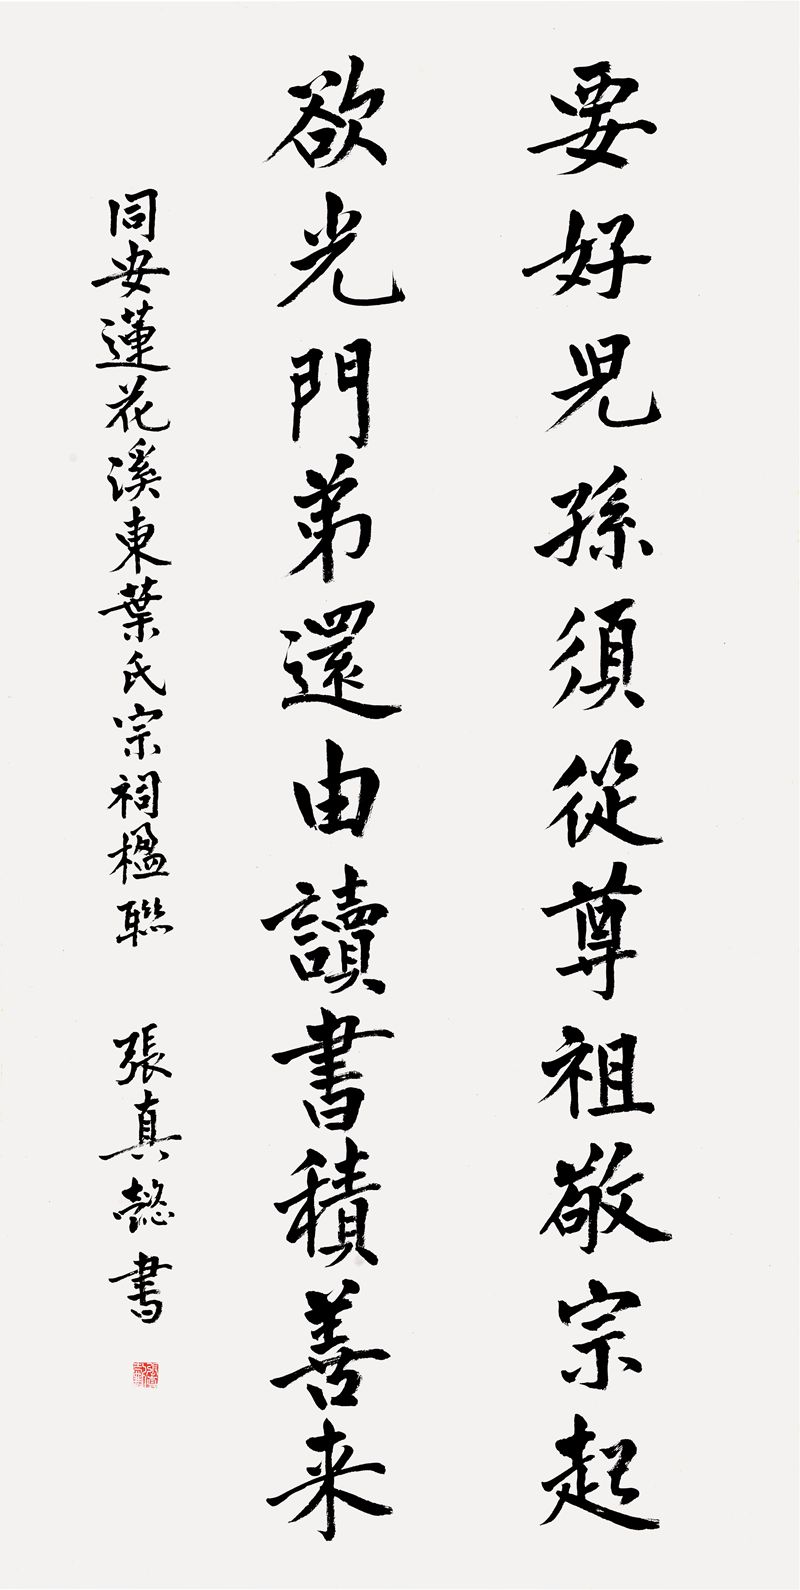 要好児孫須從尊祖敬宗起
欲光門弟還由讀書積善来
同安蓮花溪東葉氏宗祠楹聯 張真懿書